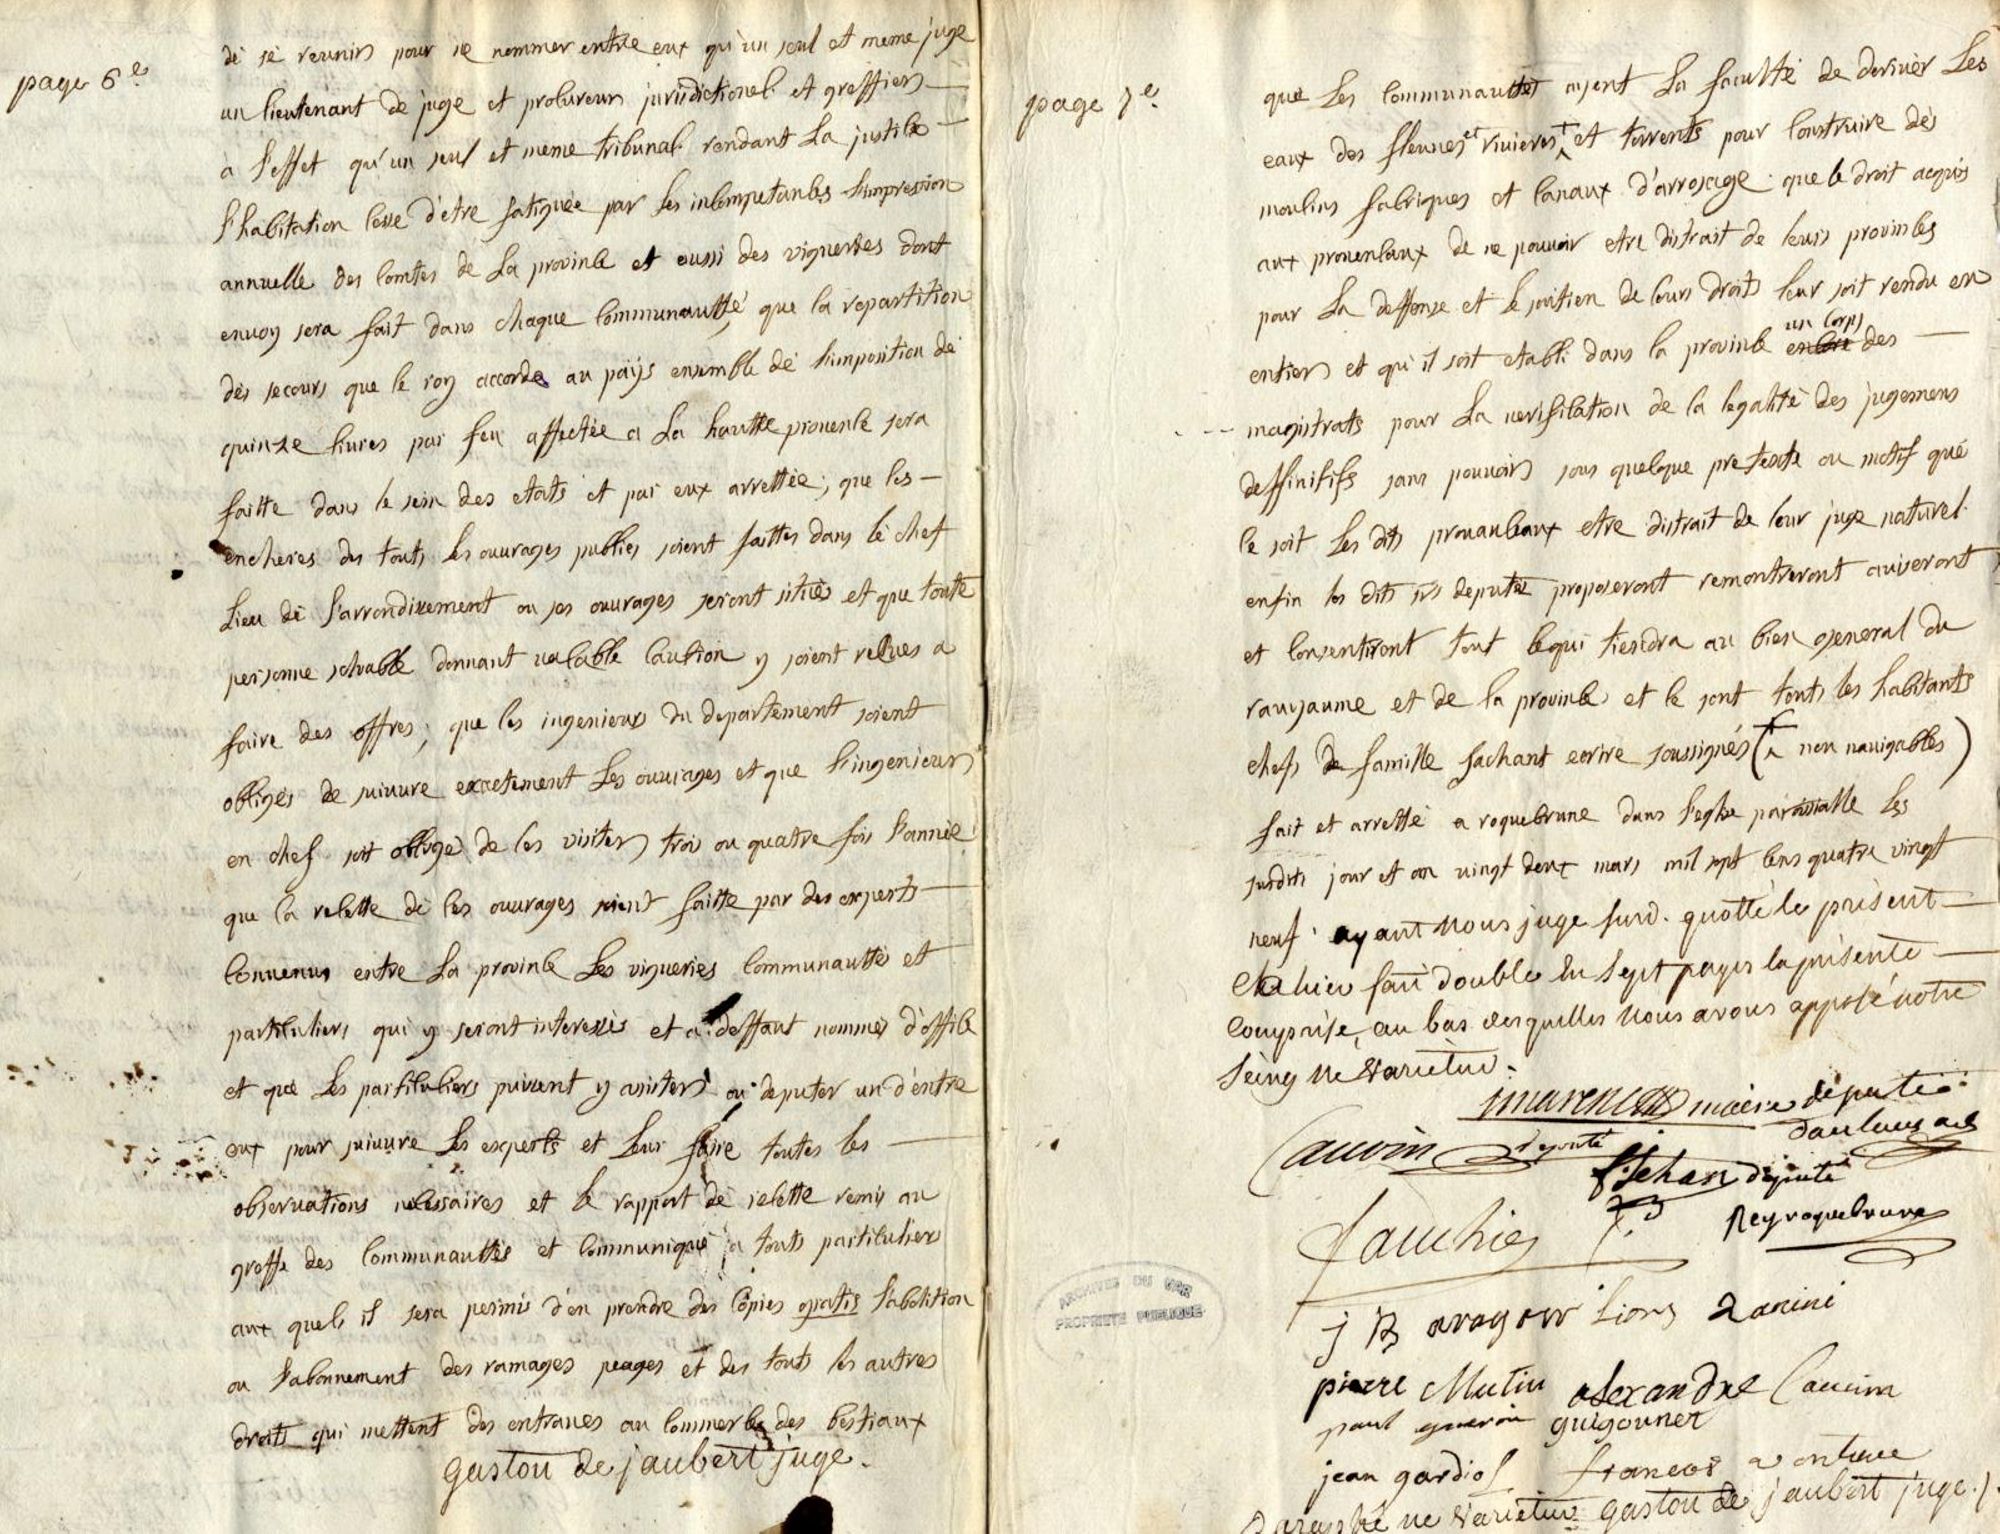 page 6e
de se reunir pour ne nommer entre eux qu'un seul et meme juge
un lieutenant de juge et procureur jurisdictionel et greffier
a l'effet qu'un seul et meme tribunal rendant La justice
l'habitation cesse d'etre fatiguée par Les incompetances l'impression
annuelle des comtes de La province et aussi des vigueries dont
envoy sera fait dans chaque communautté que la repartition
des secours que le roy accorde au païs ensemble de l'imposition de
quinze livres par feu affectée a La hautte provence sera
faitte dans le sein des etats et par eux arrettée; que les
encheres des touts Les ouvrages publics soient faittes dans le chef
Lieu de l'arrondissement ou ses ouvrages seront sitüés et que toutte
personne solvable donnant valable caution y soient recues a
faire des offres; que les ingenieurs du departement soient
obligés de suivre exactement Les ouvrages et que L'ingenieur
en chef soit obligé de les visiter trois ou quatre fois l'année
que la recette de ces ouvrages soient faitte par des experts
convenus entre La province Les vigueries communauttés et
particuliers qui y seront interessés et a deffaut nommés d'office
et que Les particuliers puissent y assister ou deputer un d'entre
eux pour suivre Les experts et Leur faire toutes les
observations necessaires et le rapport de recette remis au
greffe des communauttés et communiqué a touts particuliers
aux quels il sera permis d'en prendre des copies gratis l'abolition
ou l'abonnement des ramages peages et des touts les autres
droits qui mettent des entraves au commerce des bestiaux
gaston de jaubert juge.
page 7e
que Les communauttés ayent La faculté de deriver Les
eaux des fleuves et rivieres + et torrents pour construire des
moulins fabriques et canaux d'arrosage que le droit acquis
aux provencaux de ne pouvoir etre distrait de leurs provinces
pour La deffense et le soutien de leurs droits leur soit rendu en
entier et qu'il soit etabli dans la province un corps des
magistrats pour La verification de la legalité des jugemens
deffinitifs sans pouvoir sous quelque pretexte ou motif que
ce soit Les dits provançaux etre distrait de leur juge naturel
enfin les dits srs deputés proposeront remontreront aviseront
et consentiront tout cequi tiendra au bien general du
rauyaume et de la province et ce sont touts les habitants
chefs de famille sachant ecrire soussignés (+ non navigables)
fait et arretté a roquebrune dans l'eglise paroissialle Les
susdits jour et an vingt deux mars mil sept cens quatre vingt
neuf ayant nous juge susd. quotté le présent
Cahier fait double en sept pages la présente
comprise, au bas desquelles nous avons apposé notre
seing ne varietur.
maire deputé
Cauvin deputé
deputé
Rey roquebrune
j B aragon
pierre Mutin alexandre Cauvin
paul guerin guigonnet
jean gardiol francois
paraphé ne varietur gaston de jaubert juge.
ARCHIVES DU VAR
PROPRIETE PUBLIQUE